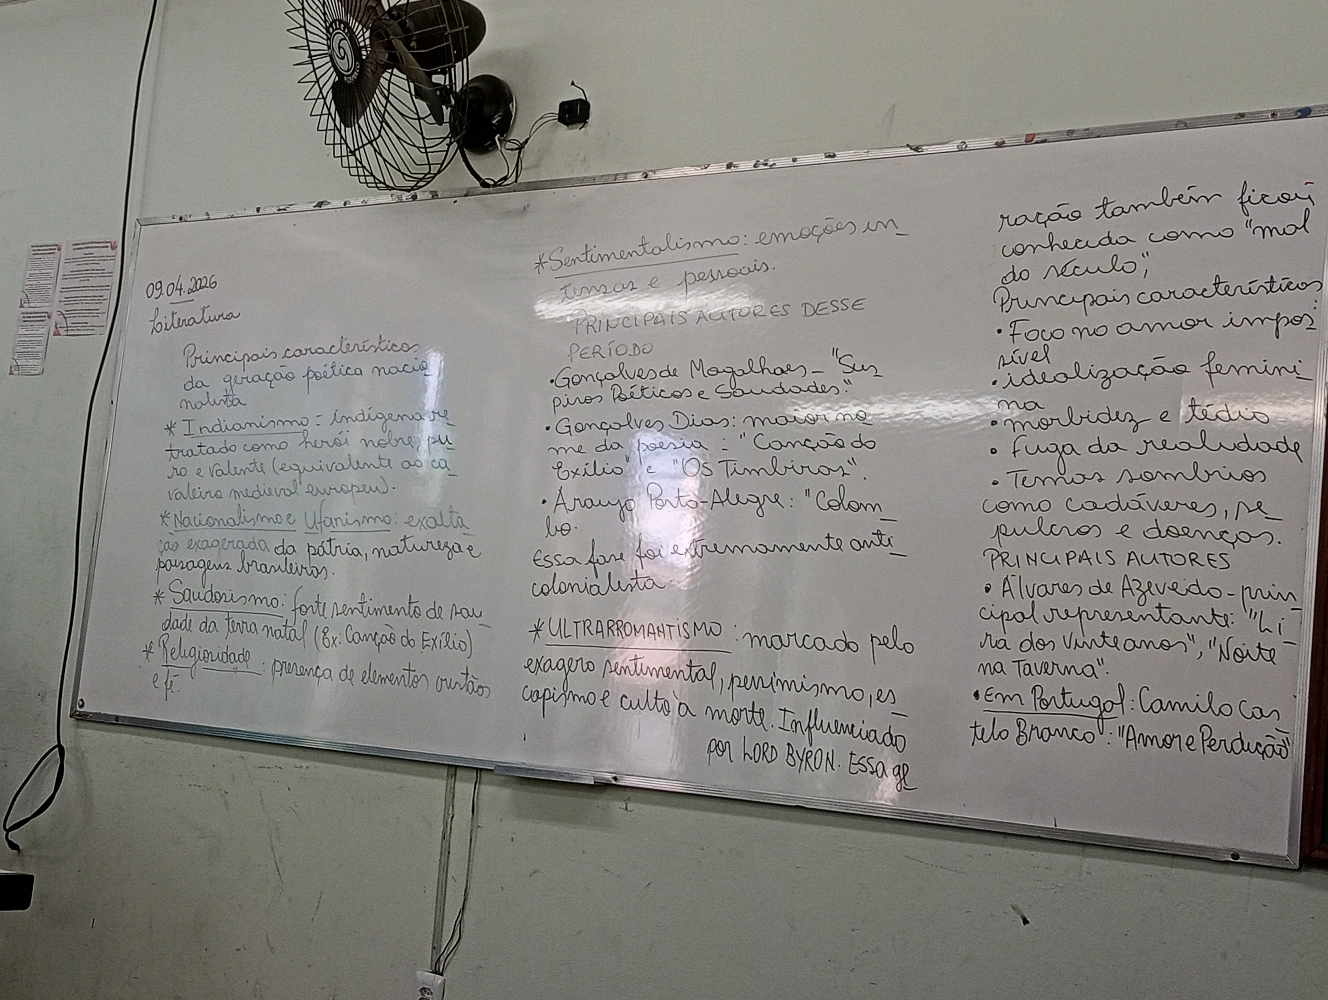 09.04.2026
Literatura
Principais características
da geração poética nacio
nalista
* Indianismo = indígena re
tratado como herói nobre, pu
ro e valente (equivalente ao ca
valeiro medieval europeu).
* Nacionalismo e Ufanismo: exalta
ção exagerada da pátria, natureza e
paisagens brasileiras.
* Saudosismo: forte sentimento de sau
dade da terra natal (Ex: Canção do Exílio)
* Religiosidade: presença de elementos cristãos
e fé.
* Sentimentalismo: emoções in_
tensas e pessoais.
PRINCIPAIS AUTORES DESSE
PERÍODO
• Gonçalves de Magalhães - "Sus
piros Poéticos e Saudades."
• Gonçalves Dias: maior no
me da poesia: "Canção do
Exílio" e "Os Timbiras".
• Araujo Porto-Alegre: "Colom_
bo.
Essa fase foi extremamente anti_
colonialista
* ULTRARROMANTISMO: marcado pelo
exagero sentimental, pessimismo, es_
capismo e culto à morte. Influenciado
por LORD BYRON. Essa ge_
ração também ficou
conhecida como "mal
do século",
Principais características
• Foco no amor impos
sível
• idealização femini_
na
• morbidez e tédio
• Fuga da realidade
• Temas sombrios
como cadáveres, se_
pulcros e doenças.
PRINCIPAIS AUTORES
• Álvares de Azevedo - prin_
cipal representante: "Li_
ra dos Vinte anos", "Noite
na Taverna".
• Em Portugal: Camilo Cas_
telo Branco: "Amor e Perdição"